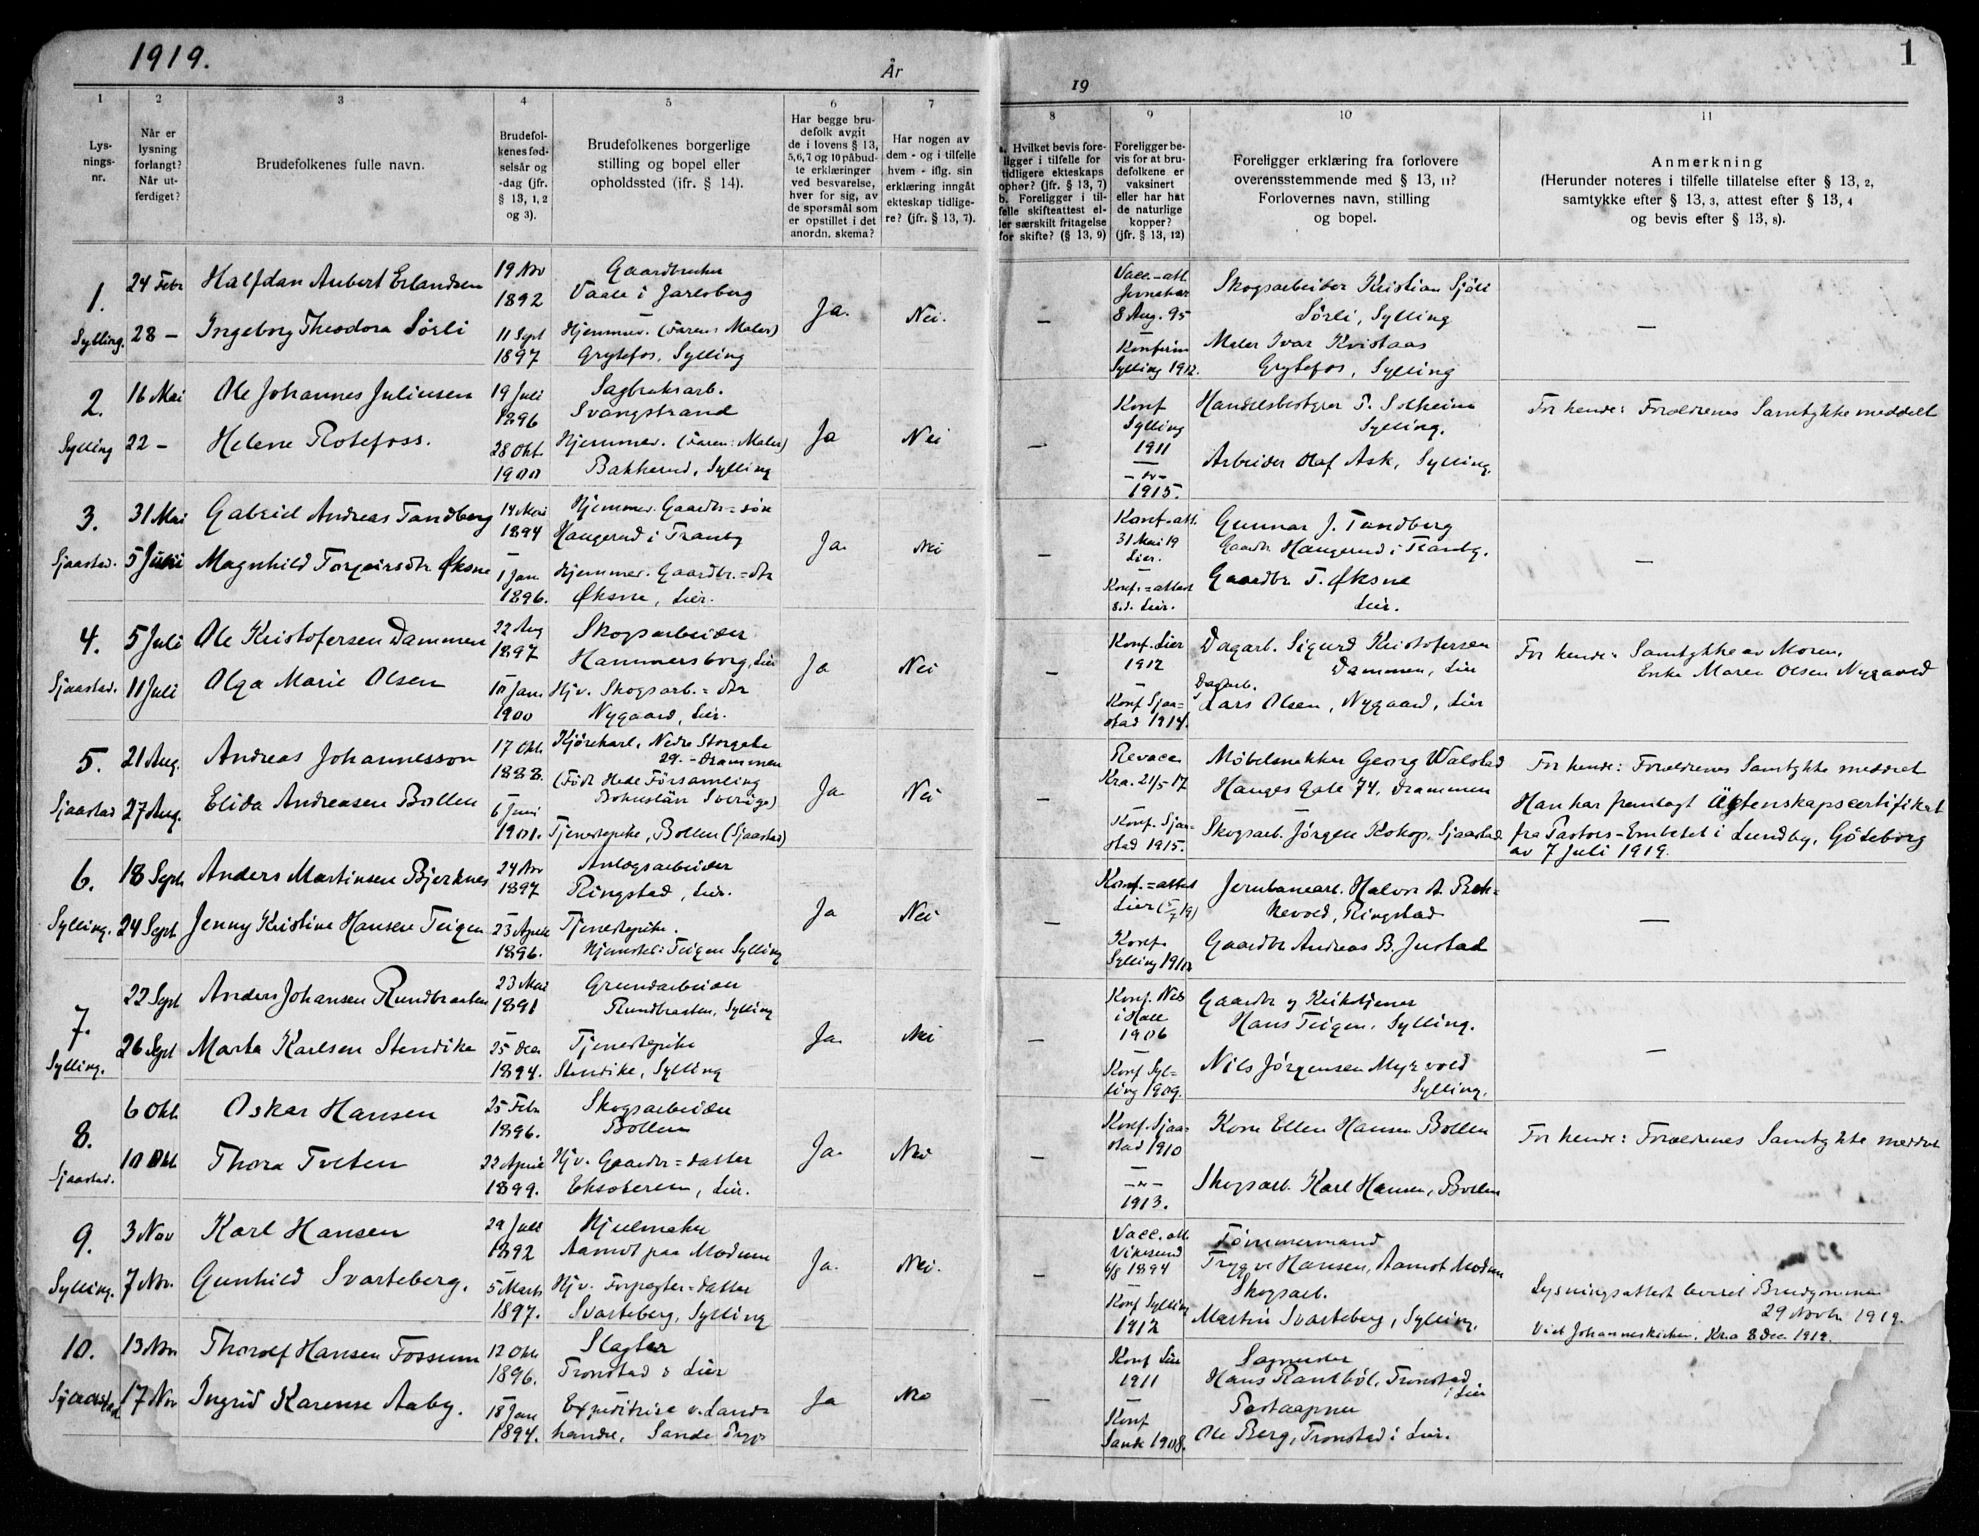 1919.
År
19
1
1
2
3
4
5
6
7
8
9
10
11
Lys-
nings-
nr.
Når er
lysning
forlangt?
Når ut-
ferdiget?
Brudefolkenes fulle navn.
Brudefol-
kenes fød-
selsår og
-dag (jfr.
§ 13, 1, 2
og 3).
Brudefolkenes borgerlige
stilling og bopel eller
opholdssted (jfr. § 14).
Har begge bru-
defolk avgit
de i lovens § 13,
5,6,7 og 10 påbud-
te erklæringer
ved besvarelse,
hver for sig, av
de spørsmål som
er opstillet i det
anordn. skema?
Har nogen av
dem - og i tilfelle
hvem - iflg. sin
erklæring inngått
ekteskap tidlige-
re? (jfr. § 13, 7).
a. Hvilket bevis fore-
ligger i tilfelle for
tidligere ekteskaps
ophør? (jfr. § 13, 7)
b. Foreligger i til-
felle skifteattest el-
ler særskilt fritagelse
for skifte? (§ 13, 9)
Foreligger be-
vis for at bru-
defolkene er
vaksinert
eller har hat
de naturlige
kopper?
(jfr. § 13, 12)
Foreligger erklæring fra forlovere
overensstemmende med § 13, 11?
Forlovernes navn, stilling
og bopel.
Anmerkning
(Herunder noteres i tilfelle tillatelse efter § 13, 2,
samtykke efter § 13, 3, attest efter § 13, 4
og bevis efter § 13, 8).
1.
Sylling.
24 Febr
28 —
Halfdan Aubert Erlandsen
Ingeborg Theodora Sørli
19 Nov
1892
11 Sept
1897
Gaardbruker
Vaale i Jarlsberg
Hjemmev. (Faren: Maler)
Grytefos, Sylling
Ja.
Nei.
—
Vacc.-att.
8 Aug. 95
Konfirm
Sylling 1912.
Skogsarbeider Kristian Sjøli
Sørli, Sylling
Maler Ivar Kvistaas
Grytefos, Sylling
—
2.
Sylling
16 Mai
22 —
Ole Johannes Juliussen
Helene Rotefoss.
19 Juli
1896
28 Okt.
1900
Sagbruksarb.
Svangstrand
Hjemmev. (Faren: Maler)
Bakkerud, Sylling
Ja
Nei
—
Konf
Sylling
1911
—
-"-
1915.
Handelsbestyrer P. Solheim
Sylling.
Arbeider Olaf Ask, Sylling.
For hende: Forældrenes Samtykke meddelt
3.
Sjaastad.
31 Mai
5 Juni
Gabriel Andreas Tandberg
Magnhild Torgeirsdtr Øksne
14 Mai
1894
1 Jan
1896.
Hjemmev. Gaardbr.=søn
Haugerud i Tranby
Hjemmev. Gaardbr.=dtr
Øksne, Lier.
Ja.
Nei
—
Konf-att.
31 Mai 19
Lier.
—
Konf.=attest
s.d. Lier.
Gunnar J. Tandberg
Gaardbr Haugerud i Tranby.
Gaardbr T. Øksne
Lier.
—
4.
Sjaastad.
5 Juli
11 Juli
Ole Kristofersen Dammen
Olga Marie Olsen
22 Aug
1897
10 Jan.
1900
Skogsarbeider
Hammersborg, Lier
Hjv. Skogsarb.=dtr
Nygaard, Lier.
Ja
Nei
—
Konf. Lier
1912
—
Konf Sjaa-
stad 1914.
Dagarb. Sigurd Kristofersen
Dammen, Lier
Dagarb.
Lars Olsen, Nygaard, Lier
For hende: Samtykke av Moren,
Enke Maren Olsen Nygaard
5.
Sjaastad
21 Aug.
27 Aug.
Andreas Johannesson
Elida Andreasen Bollen
17 Okt.
1888.
6 Juni
1901.
Kjørekarl, Nedre Storgate
29. - Drammen
(Født Hede Församling
Bohuslän Sverige)
Tjenestepike, Bollen (Sjaastad)
Ja.
Nei
—
Revacc.
Kra. 21/5-17
—
Konf. Sjaa-
stad 1915.
Møbelsnekker Georg Walstad
Hauges Gate 74, Drammen
Skogsarb. Jørgen Kokop, Sjaastad
For hende: Forældrenes Samtykke meddelt
Han har fremlagt Äktenskapscertifikat
fra Pastors-Embetet i Lundby, Göteborg
av 7 Juli 1919.
6.
Sylling.
18 Sept.
24 Sept
Anders Martinsen Bjerknes
Jenny Kristine Hansen Teigen
24 Nov
1897
23 April
1896.
Anlægsarbeider
Ringstad, Lier.
Tjenestepike.
Hjemsted: Teigen Sylling
Ja
Nei
—
Konf.=attest
Lier
Konf.
Gaardbr Andreas B. Justad
—
7.
Sylling.
22 Sept
26 Sept
Anders Johansen Rundbraaten
Marta Karlsen Stensike
23 Mai
1891
25 Dec
1894.
Grundarbeider
Rundbraaten, Sylling
Tjenestepike
Stensike, Sylling
Ja.
Nei
—
Konf. Nes
i Hall
1906
—
Konf Syl-
ling 1909.
Gaardbr og Kirketjener
Hans Teigen, Sylling.
Nils Jørgensen Myrvold
Sylling.
—
8.
Sjaastad.
6 Okt.
10 Okt
Oskar Hansen
Thora Tveten
25 Febr
1896.
22 April
1899.
Skogsarbeider
Bollen
Hjv. Gaardbr=datter
Eksæteren, Lier.
Ja.
Nei
—
Konf. Sjaa-
stad 1910
—
-"-
1913.
Kone Ellen Hansen Bollen
Skogsarb. Karl Hansen, Bollen
For hende: Forældrenes Samtykke meddelt
9.
Sylling.
3 Nov
7 Nov.
Karl Hansen
Gunhild Svarteberg.
29 Juli
1892
5 Marts
1897.
Hjulmaker
Aamot paa Modum
Hjv. Forpagter=datter
Svarteberg, Sylling
Ja.
Nei.
—
Vacc.att.
Vikesund
6/8 1894
—
Konf Sylling
1912
Tømmermand
Trygve Hansen, Aamot Modum
Skogsarb.
Martin Svarteberg, Sylling.
Lysningsattest levert Brudgommen
29 Novbr. 1919.
Viet Johanneskirken, Kra 8 Dec 1919.
10.
Sjaastad.
13 Nov
17 Nov
Thorolf Hansen Fossum
Ingrid Karense Aaby.
12 Okt
1896.
18 Jan
1894.
Slagter
Tronstad i Lier
Expeditrise v. Land-
handel, Sande
Ja
Nei
—
Konf Lier
1911
—
Konf
Sande 1908.
Sagmester
Hans Rantbøl, Tronstad
i Lier
Postaapner
Ole Berg, Tronstad i Lier.